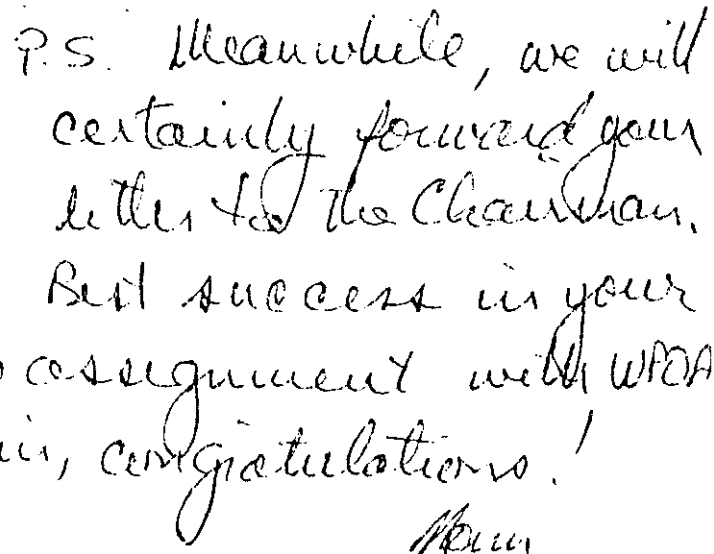 P.S. Meanwhile, we will
certainly forward your
letter to the Chairman.
Best success in your
assignment with
congratulations!